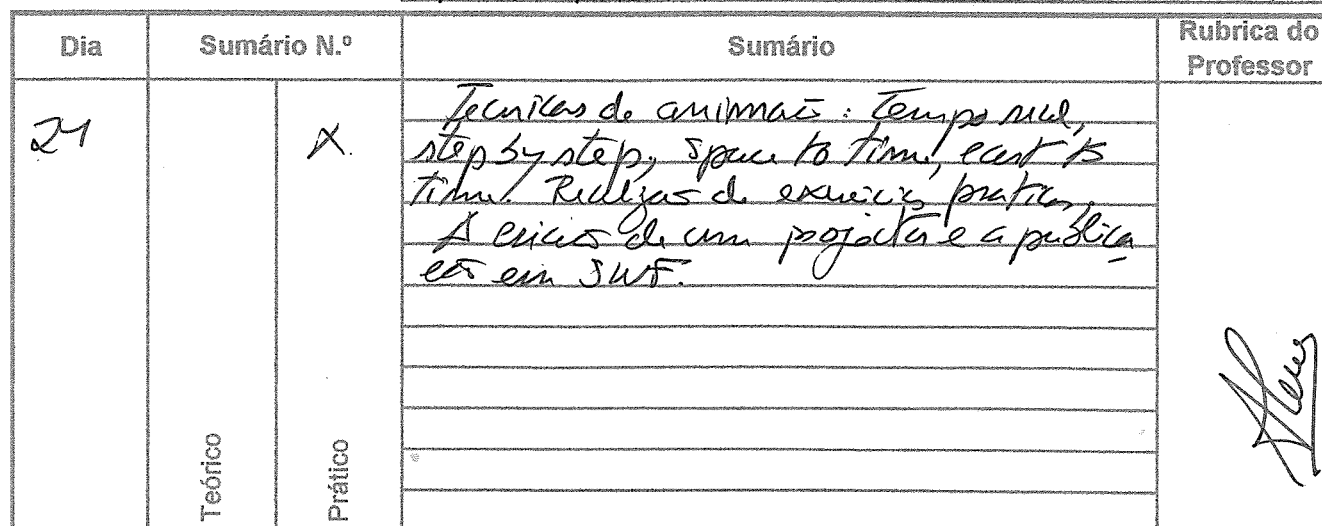 Dia Sumário N.º Sumário Rubrica do Professor
21 X.
Tecnicas de animação: Tempo real,
step by step, space to time, cast to
time. Realização de exercicios praticos.
A criação de um projector e a publica
ção em SWF.
Teórico
Prático